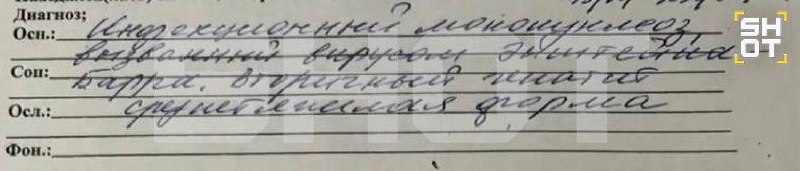 Диагноз:
Осн.: Инфекционный мононуклеоз,
вызванный вирусом Эпштейна
Соп: Барра. Вторичный гепатит
Осл.: среднетяжелая форма
Фон.:
SHOT
SHOT